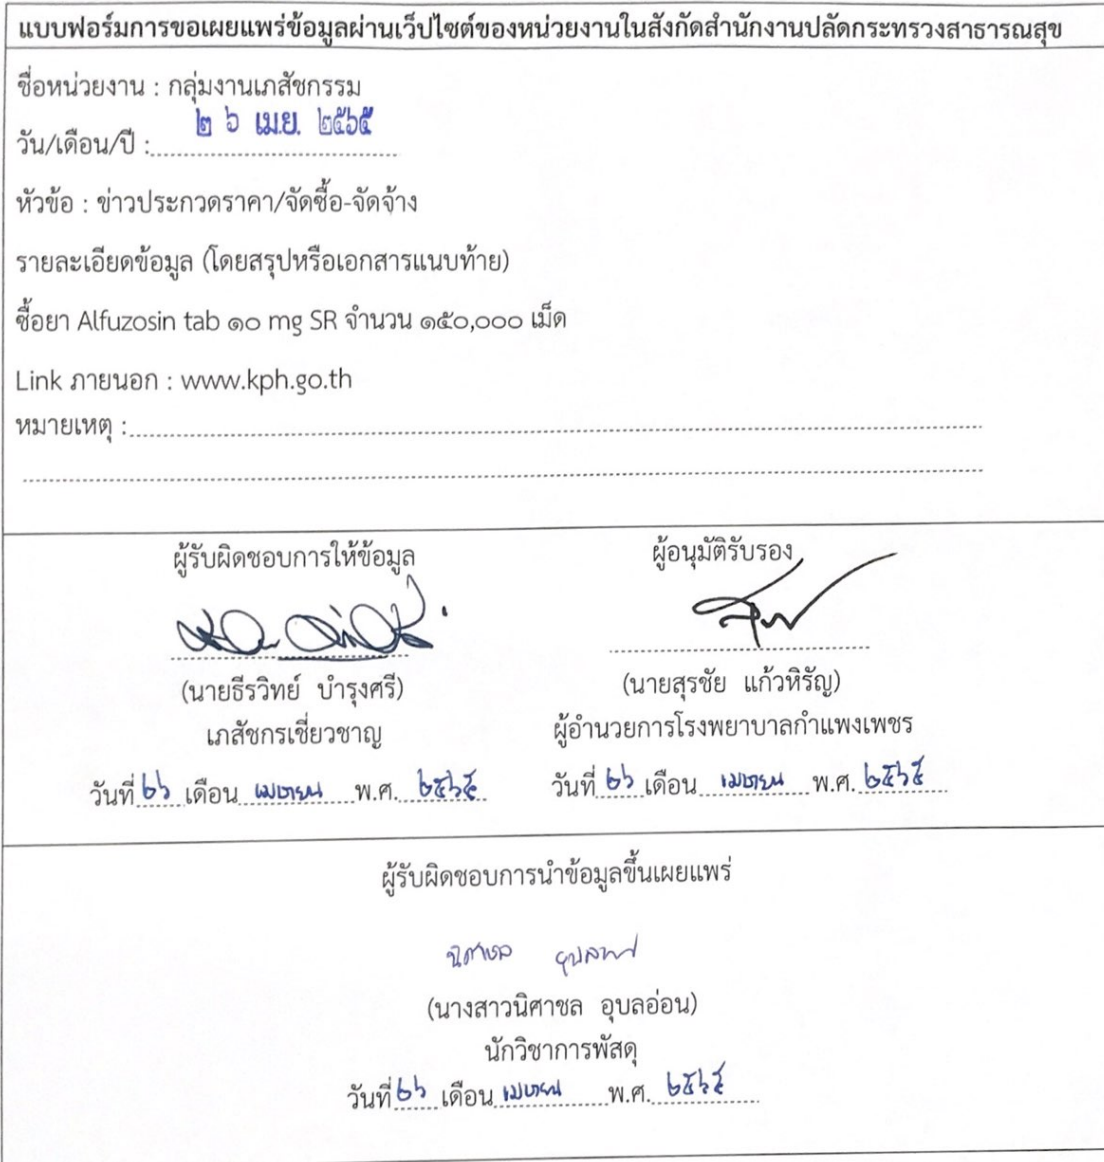 แบบฟอร์มการขอเผยแพร่ข้อมูลผ่านเว็ปไซต์ของหน่วยงานในสังกัดสำนักงานปลัดกระทรวงสาธารณสุข
ชื่อหน่วยงาน : กลุ่มงานเภสัชกรรม
วัน/เดือน/ปี : ๒ ๖ เม.ย. ๒๕๖๕
หัวข้อ : ข่าวประกวดราคา/จัดซื้อ-จัดจ้าง
รายละเอียดข้อมูล (โดยสรุปหรือเอกสารแนบท้าย)
ซื้อยา Alfuzosin tab ๑๐ mg SR จำนวน ๑๕๐,๐๐๐ เม็ด
Link ภายนอก : www.kph.go.th
หมายเหตุ :
ผู้รับผิดชอบการให้ข้อมูล
(นายธีรวิทย์ บำรุงศรี)
เภสัชกรเชี่ยวชาญ
วันที่ ๒๖ เดือน เมษายน พ.ศ. ๒๕๖๕
ผู้อนุมัติรับรอง
(นายสุรชัย แก้วหิรัญ)
ผู้อำนวยการโรงพยาบาลกำแพงเพชร
วันที่ ๒๖ เดือน เมษายน พ.ศ. ๒๕๖๕
ผู้รับผิดชอบการนำข้อมูลขึ้นเผยแพร่
(นางสาวนิศาชล อุบลอ่อน)
นักวิชาการพัสดุ
วันที่ ๒๖ เดือน เมษายน พ.ศ. ๒๕๖๕